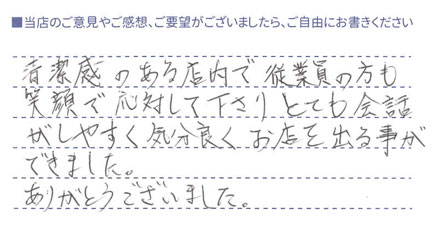 ■当店のご意見やご感想、ご要望がございましたら、ご自由にお書きください
清潔感のある店内で従業員の方も
笑顔で応対して下さりとても会話
がしやすく気分良くお店を出る事が
できました。
ありがとうございました。